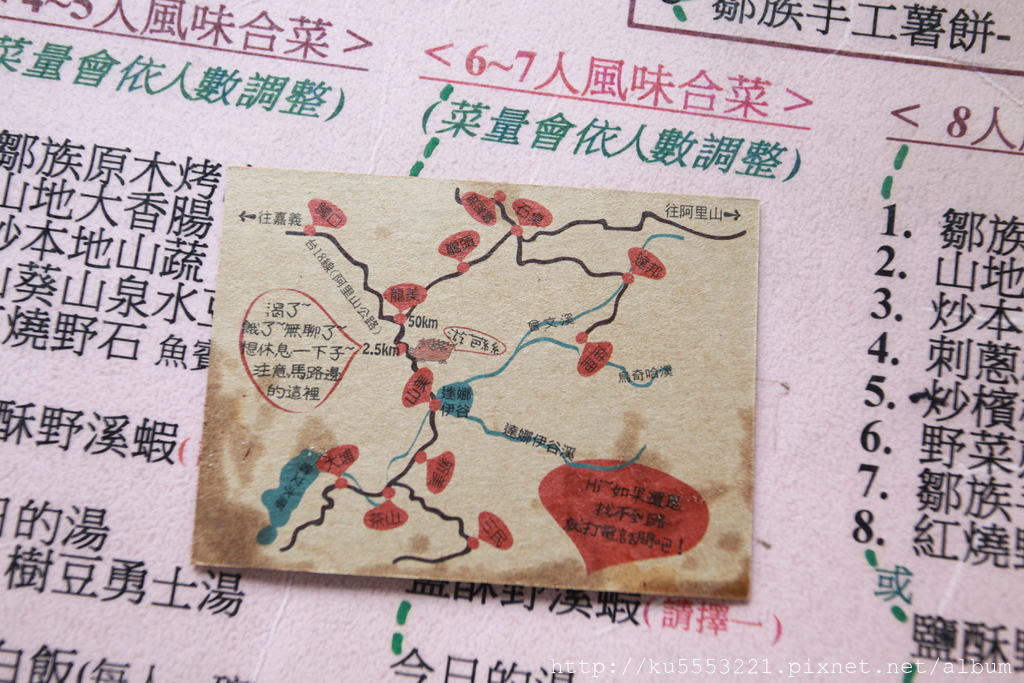 4~5人風味合菜 >
菜量會依人數調整)
鄒族原木烤
山地大香腸
炒本地山蔬
山葵山泉水豆
燒野石 魚
酥野溪蝦(
日的湯
樹豆勇士湯
白飯(每人
< 6~7人風味合菜 >
(菜量會依人數調整)
鹽酥野溪蝦(請擇一)
今日的湯
鄒族手工薯餅-
< 8人
1. 鄒族
2. 山地
3. 炒本
4. 刺蔥
5. 炒檳
6. 野菜
7. 鄒族
8. 紅燒
或
鹽酥
往嘉義
觸口
台18線(阿里山公路)
石桌
往阿里山
達邦
龍美
50km
2.5km
渴了~
餓了~無聊了~
想休息一下子~
注意馬路邊
的這裡
游芭絲
曾文溪
烏奇哈溪
山美
達娜
伊谷
達娜伊谷溪
新美
大埔
曾文水庫
茶山
Hi~如果還是
找不到路
就打電話問吧!
http://ku5553221.pixnet.net/album